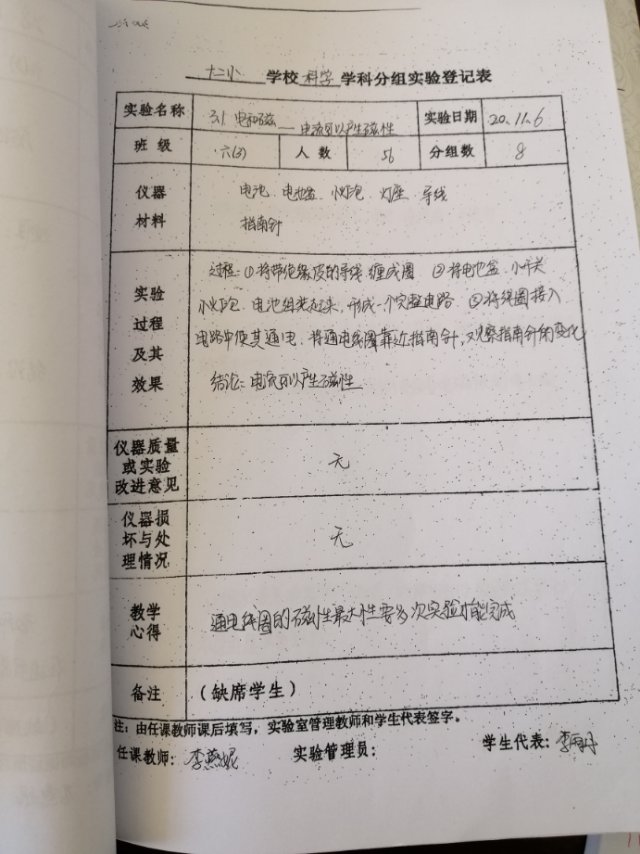 十二小 学校 科学 学科分组实验登记表
实验名称 3.1 电和磁——电流可以产生磁性 实验日期 20.11.6
班级 六(3) 人数 56 分组数 8
仪器材料 电池、电池盒、小灯泡、灯座、导线
指南针
实验过程及其效果 过程:①将带绝缘皮的导线缠成圈 ②将电池盒、小开关
小灯泡、电池组装起来,形成一个完整电路 ③将线圈接入
电路中使其通电,将通电线圈靠近指南针,观察指南针的变化
结论:电流可以产生磁性
仪器质量或实验改进意见 无
仪器损坏与处理情况 无
教学心得 通电线圈的磁性最大性要多次实验才能完成
备注 (缺席学生)
注:由任课教师课后填写,实验室管理教师和学生代表签字。
任课教师:李燕妮 实验管理员: 学生代表:李